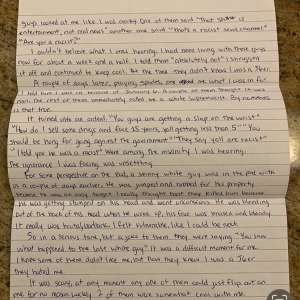 guys, looked at me like I was crazy. One of them said "That show is
entertainment, not real news" another one said "that's a racist news channel"
"Are you a racist?"
I couldn't believe what I was hearing. I had been living with these guys
now for about a week and a half. I told them "absolutely not" shrugging
it off and continued to keep cool. By the time they didn't know I was a J6er.
A couple of days later, playing spades, one asked me what I was in for.
I told him I was in
now, the rest of them immediately called me a white supremacist. By
is that true.
It turned into an ordeal. "You guys are getting a slap on the wrist"
"How do I sell some drugs and face 15 years, yall getting less than 5" "You
should be hung for going against the government" "They say yall are racist"
"I told you he was a racist" Were among the insanity I was hearing.
The ignorance I was facing was unsettling.
For some perspective on the pod, a skinny white guy was in the pod with
us a couple of days earlier. He was jumped and robbed for his property.
he was getting stomped on his head and went unconscious. He was bleeding
out of the back of his head when he woke up, his face was bruised and bloody.
It really was brutal/barbaric. I felt vulnerable, like I could be next.
So in a serious tone, but a joke to them they were saying "You seen
what happened to the last white guy." It was a difficult moment for me.
I knew some of them didn't like me, but now they knew I was a J6er
they hated me.
It was scary, at any moment any one of them could just flip out on
me for no reason. Luckily 2 of them were somewhat cool with me